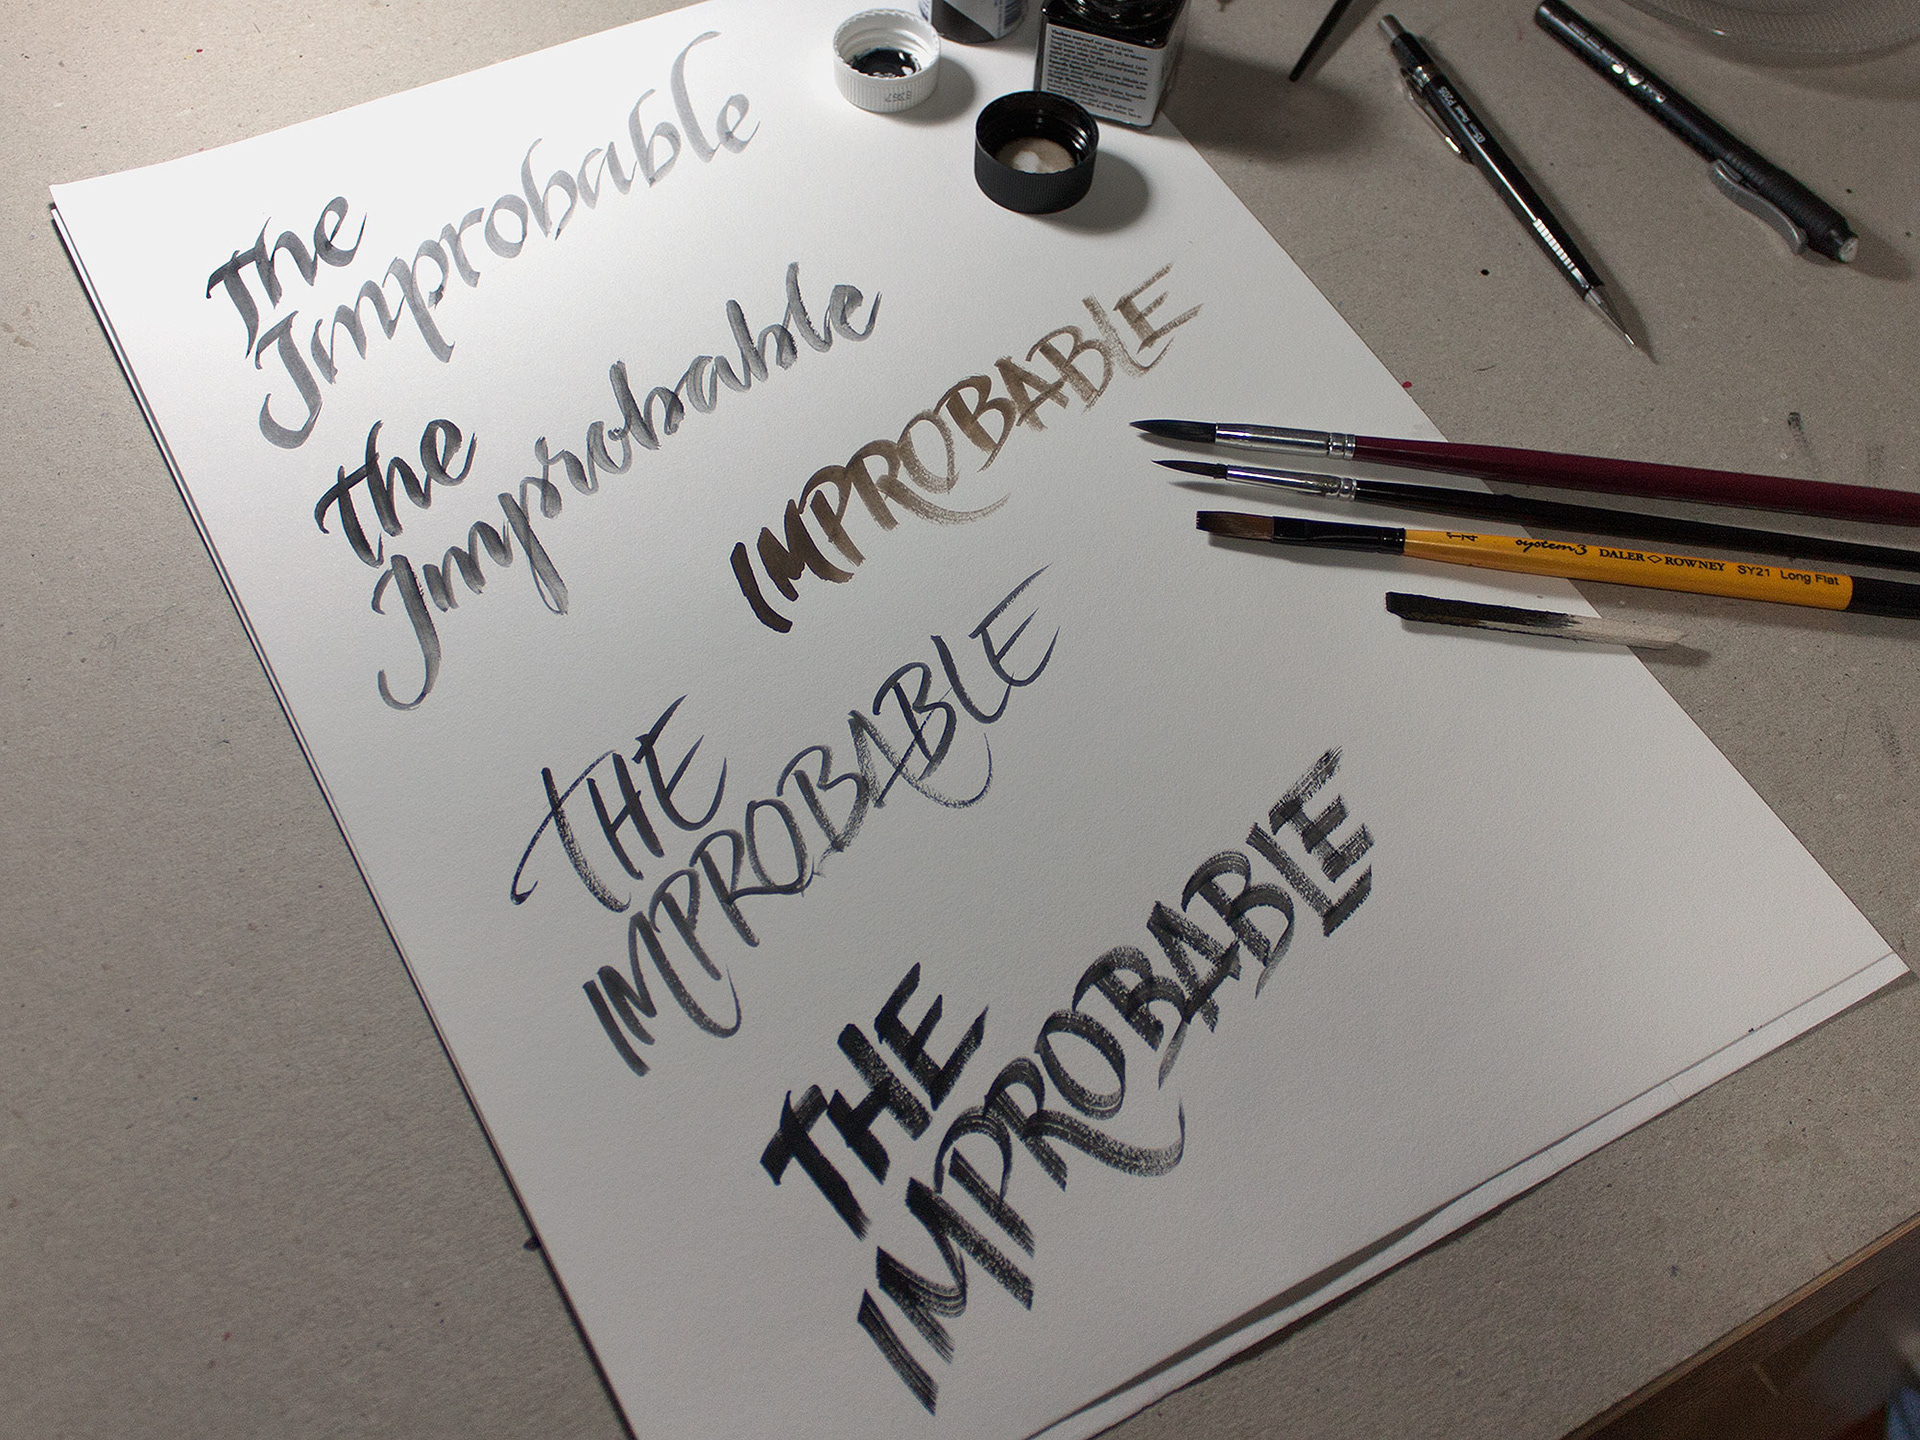 The
Improbable
the
Improbable
IMPROBABLE
THE
IMPROBABLE
THE
IMPROBABLE
system3 DALER ROWNEY SY21 Long Flat